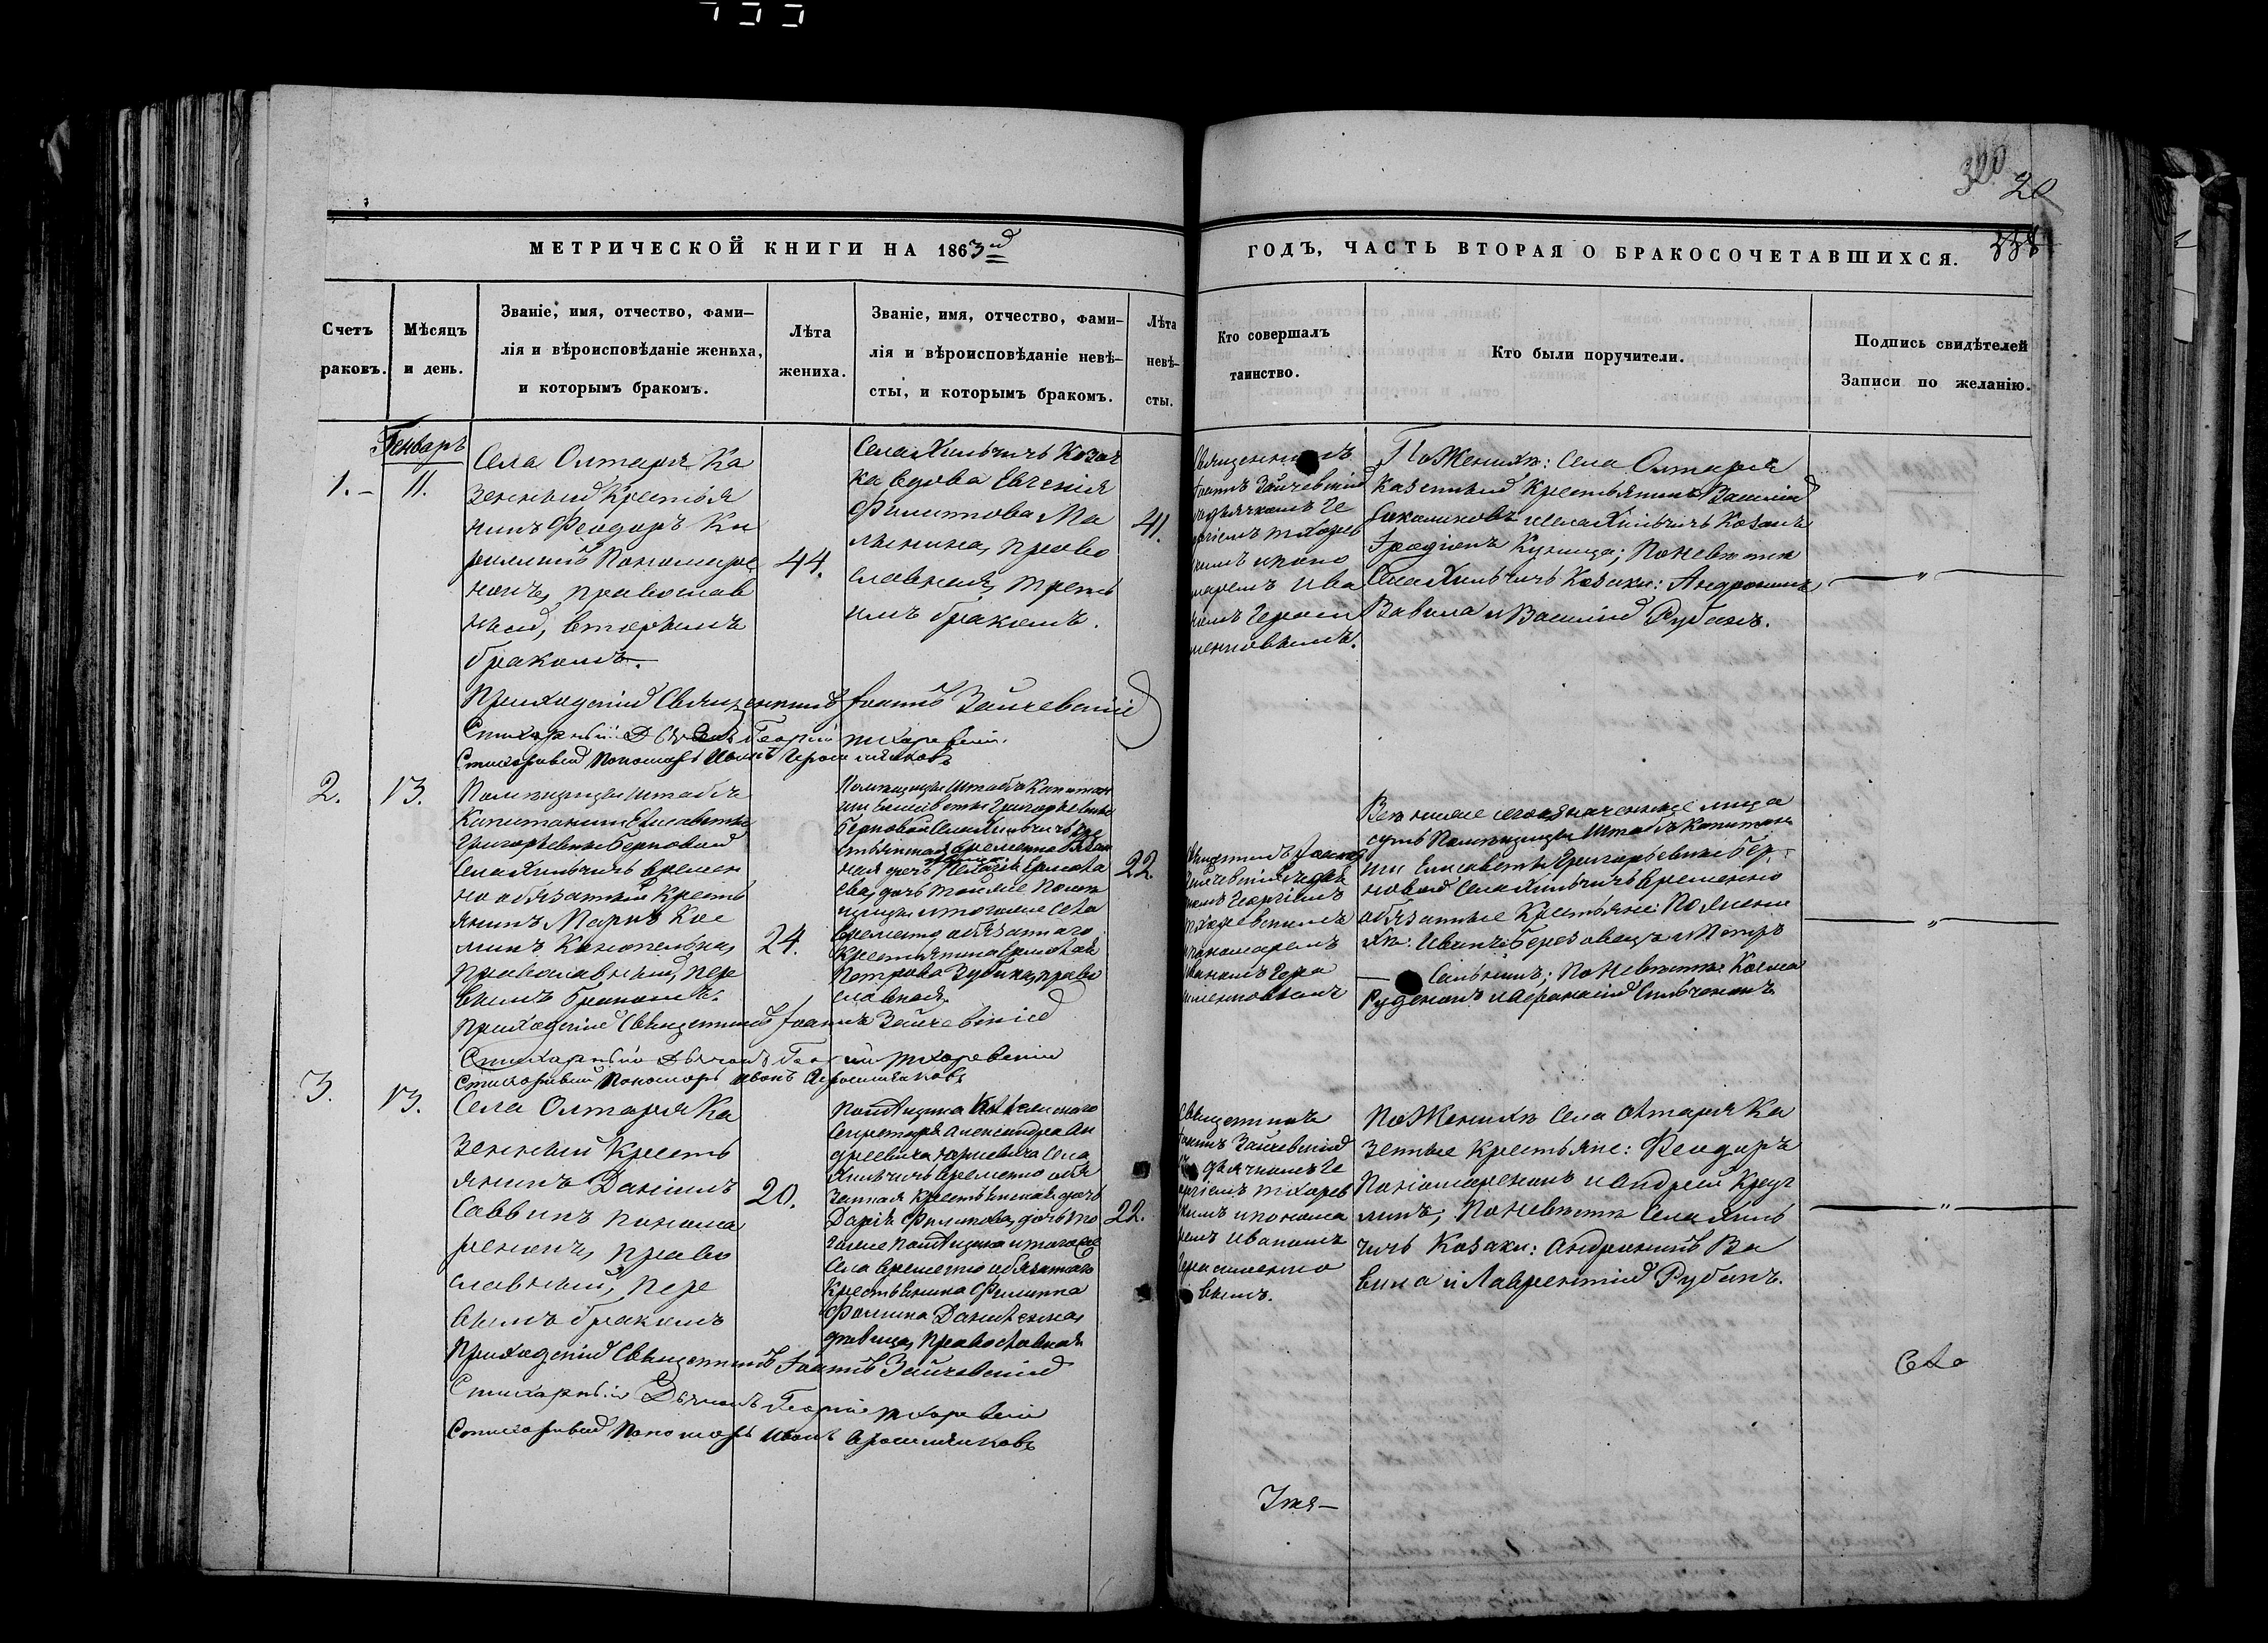 320
20
338
МЕТРИЧЕСКОЙ КНИГИ НА 1863й
ГОДЪ, ЧАСТЬ ВТОРАЯ О БРАКОСОЧЕТАВШИХСЯ.
Счетъ
раковъ.
Мѣсяцъ
и день.
Званіе, имя, отчество, фами-
лія и вѣроисповѣданіе жениха,
и которымъ бракомъ.
Лѣта
жениха.
Званіе, имя, отчество, фами-
лія и вѣроисповѣданіе невѣ-
сты, и которымъ бракомъ.
Лѣта
невѣ-
сты.
Кто совершалъ
таинство.
Кто были поручители.
Подпись свидѣтелей
Записи по желанію.
Генварь
1.
11.
Села Олтаря Ка
зенный Крестья
нинъ Феодоръ Ки
риловъ Пономаре
нокъ, православ
ный, вторымъ
бракомъ.
44.
Села Хильчичъ Козач
ка вдова Евгенія
Филипова Ма
православная, треть
имъ бракомъ.
41.
Священникъ
Іоаннъ Зайчевскій
съ дьячкомъ Ге
оргіемъ
кимъ и поно
маремъ Ива
номъ Гераси
менковымъ.
По Женихѣ: Села Олтаря
Казенный Крестьянинъ Василій
и села Хильчичъ Козакъ
Іродіонъ Куница; По Невѣстѣ
Села Хильчичъ Козаки: Андроникъ
Вавила и Василій Рубанъ.
Приходскій Священникъ Іоаннъ Зайчевскій
Стихарный Дьячокъ Георгій
Стихарный Пономарь Иванъ
2.
13.
Помѣщицы Штабъ
Капитанши Елисаветы
Григорьевны Берновой
Села Хильчичъ времен
но обязанный Кресть
янинъ Марко Кос
минъ Конопелька,
Православный, пер
вымъ бракомъ.
24.
Помѣщицы Штабъ Капитан
ши Елисаветы Григорьевны
Берновой Села Хильчичъ Кре
стьянская временно обязан
ная дочь Пелагія Ермола
ева, дочь тойже помѣ
щицы и тогоже села
временно обязаннаго
Крестьянина Ермолая
Петрова Зубика, право
славная.
22.
Священникъ Іоаннъ
Зайчевскій съ дьяч
комъ Георгіемъ
пономаремъ
Иваномъ Гера
сименковымъ
Вѣ
суть Помѣщицы Штабъ Капитан
ши Елисаветы Григорьевны Бер
новой Села Хильчичъ временно
обязанные Крестьяне: По Жени
хѣ: Иванъ Березовецъ и Петръ
По Невѣстѣ: Косма
Руденокъ и Афанасій Сильченокъ.
Приходскій Священникъ Іоаннъ Зайчевскій
Стихарный Дьячокъ Георгій
Стихарный Пономарь Иванъ
3.
13.
Села Олтаря Ка
зенный Кресть
янинъ Даніилъ
Саввинъ Понома
ренокъ, право
славный, пер
вымъ бракомъ
20.
Помѣщика Коллежскаго
Секретаря Александра Ан
дреевича Юркевича Села
Хильчичъ временно обя
занная Крестьянская дочь
Дарія Филипова, дочь то
гоже помѣщика и тогоже
Села временно обязаннаго
Крестьянина Филиппа
Фомина Даниленка,
дѣвица, Православная
22.
Священникъ
Іоаннъ Зайчевскій
съ дьячкомъ Ге
оргіемъ
кимъ и понома
ремъ Иваномъ
Герасименко
вымъ.
По Женихѣ Села Олтаря Ка
зенные Крестьяне: Феодоръ
Пономаренокъ и Андрей Круг
ликъ; По Невѣстѣ Села Хиль
чичъ Козаки: Андроникъ Ва
вила и Лаврентій Рубанъ.
Приходскій Священникъ Іоаннъ Зайчевскій
Стихарный Дьячокъ Георгій
Стихарный Пономарь Иванъ
Села